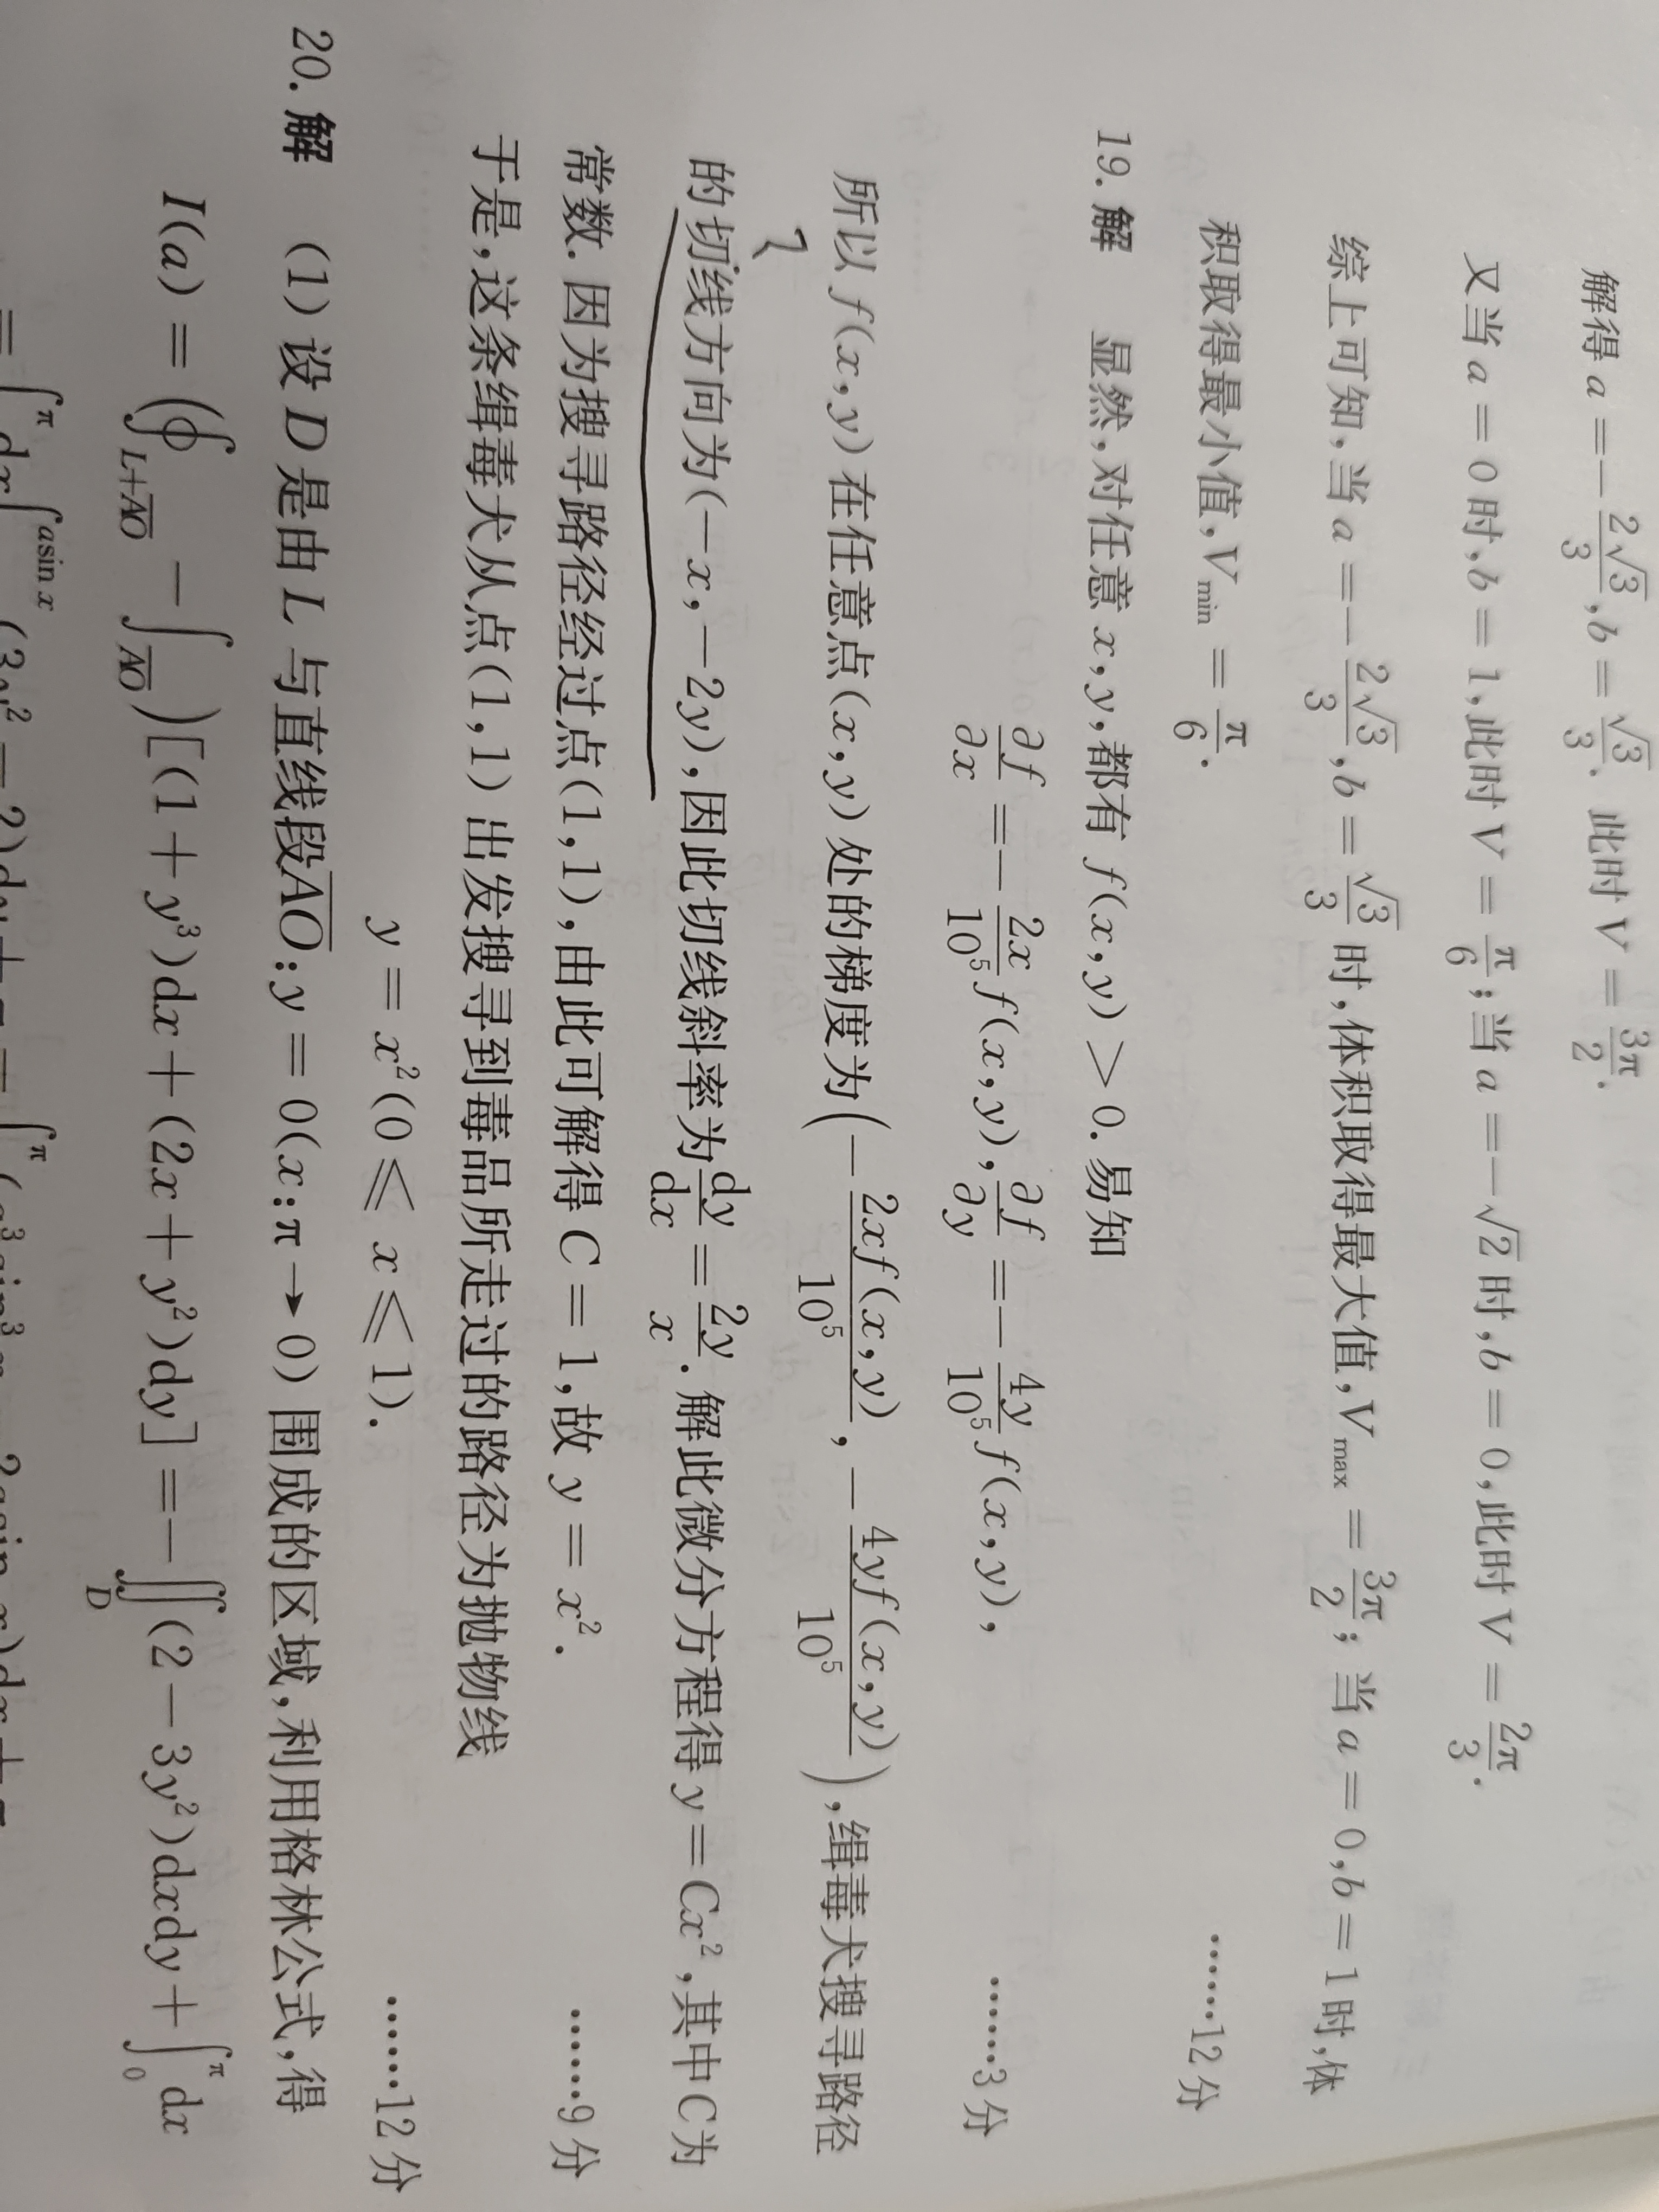 解得 a = -\frac{2\sqrt{3}}{3}, b = \frac{\sqrt{3}}{3}. 此时 V = \frac{3π}{2}.
又当 a = 0 时, b = 1, 此时 V = \frac{π}{6}; 当 a = -\sqrt{2} 时, b = 0, 此时 V = \frac{2π}{3}.
综上可知, 当 a = -\frac{2\sqrt{3}}{3}, b = \frac{\sqrt{3}}{3} 时, 体积取得最大值, V_{max} = \frac{3π}{2}; 当 a = 0, b = 1 时, 体
积取得最小值, V_{min} = \frac{π}{6}. ……12 分
19. 解 显然, 对任意 x, y, 都有 f(x, y) > 0. 易知
\frac{∂f}{∂x} = -\frac{2x}{10^5} f(x, y), \frac{∂f}{∂y} = -\frac{4y}{10^5} f(x, y), ……3 分
所以 f(x, y) 在任意点 (x, y) 处的梯度为 (-\frac{2xf(x, y)}{10^5}, -\frac{4yf(x, y)}{10^5}), 缉毒犬搜寻路径
的切线方向为(-x, -2y), 因此切线斜率为 \frac{dy}{dx} = \frac{2y}{x}. 解此微分方程得 y = Cx^2, 其中 C 为
常数. 因为搜寻路径经过点(1, 1), 由此可解得 C = 1, 故 y = x^2. ……9 分
于是, 这条缉毒犬从点(1, 1) 出发搜寻到毒品所走过的路径为抛物线
y = x^2 (0 ≤ x ≤ 1). ……12 分
20. 解 (1) 设 D 是由 L 与直线段 \overline{AO}: y = 0 (x: π → 0) 围成的区域, 利用格林公式, 得
I(a) = (∮_{L+\overline{AO}} - ∫_{\overline{AO}})[(1 + y^3)dx + (2x + y^2)dy] = -∬_D (2 - 3y^2)dxdy + ∫_0^π dx